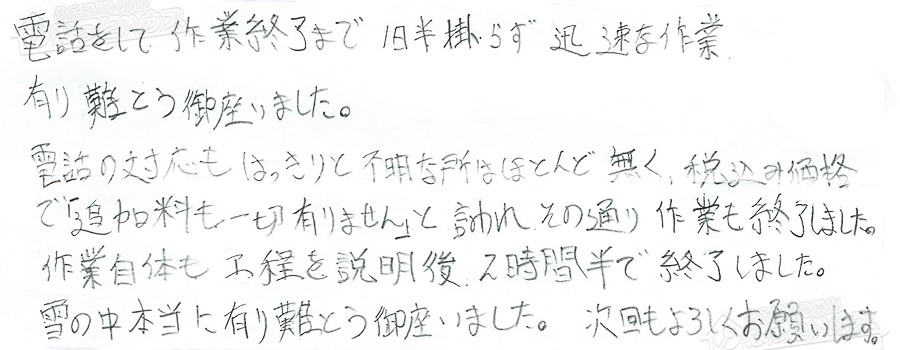 電話をして作業終了まで 1日半掛らず 迅速な作業
有り難とう御座いました。
電話の対応もはっきりと不明な所はほとんど無く、税込み価格
で「追加料も一切有りません」と言われ その通り作業も終了しました。
作業自体も 工程を説明後、2時間半で終了しました。
雪の中本当に有り難とう御座いました。 次回もよろしくお願いします。